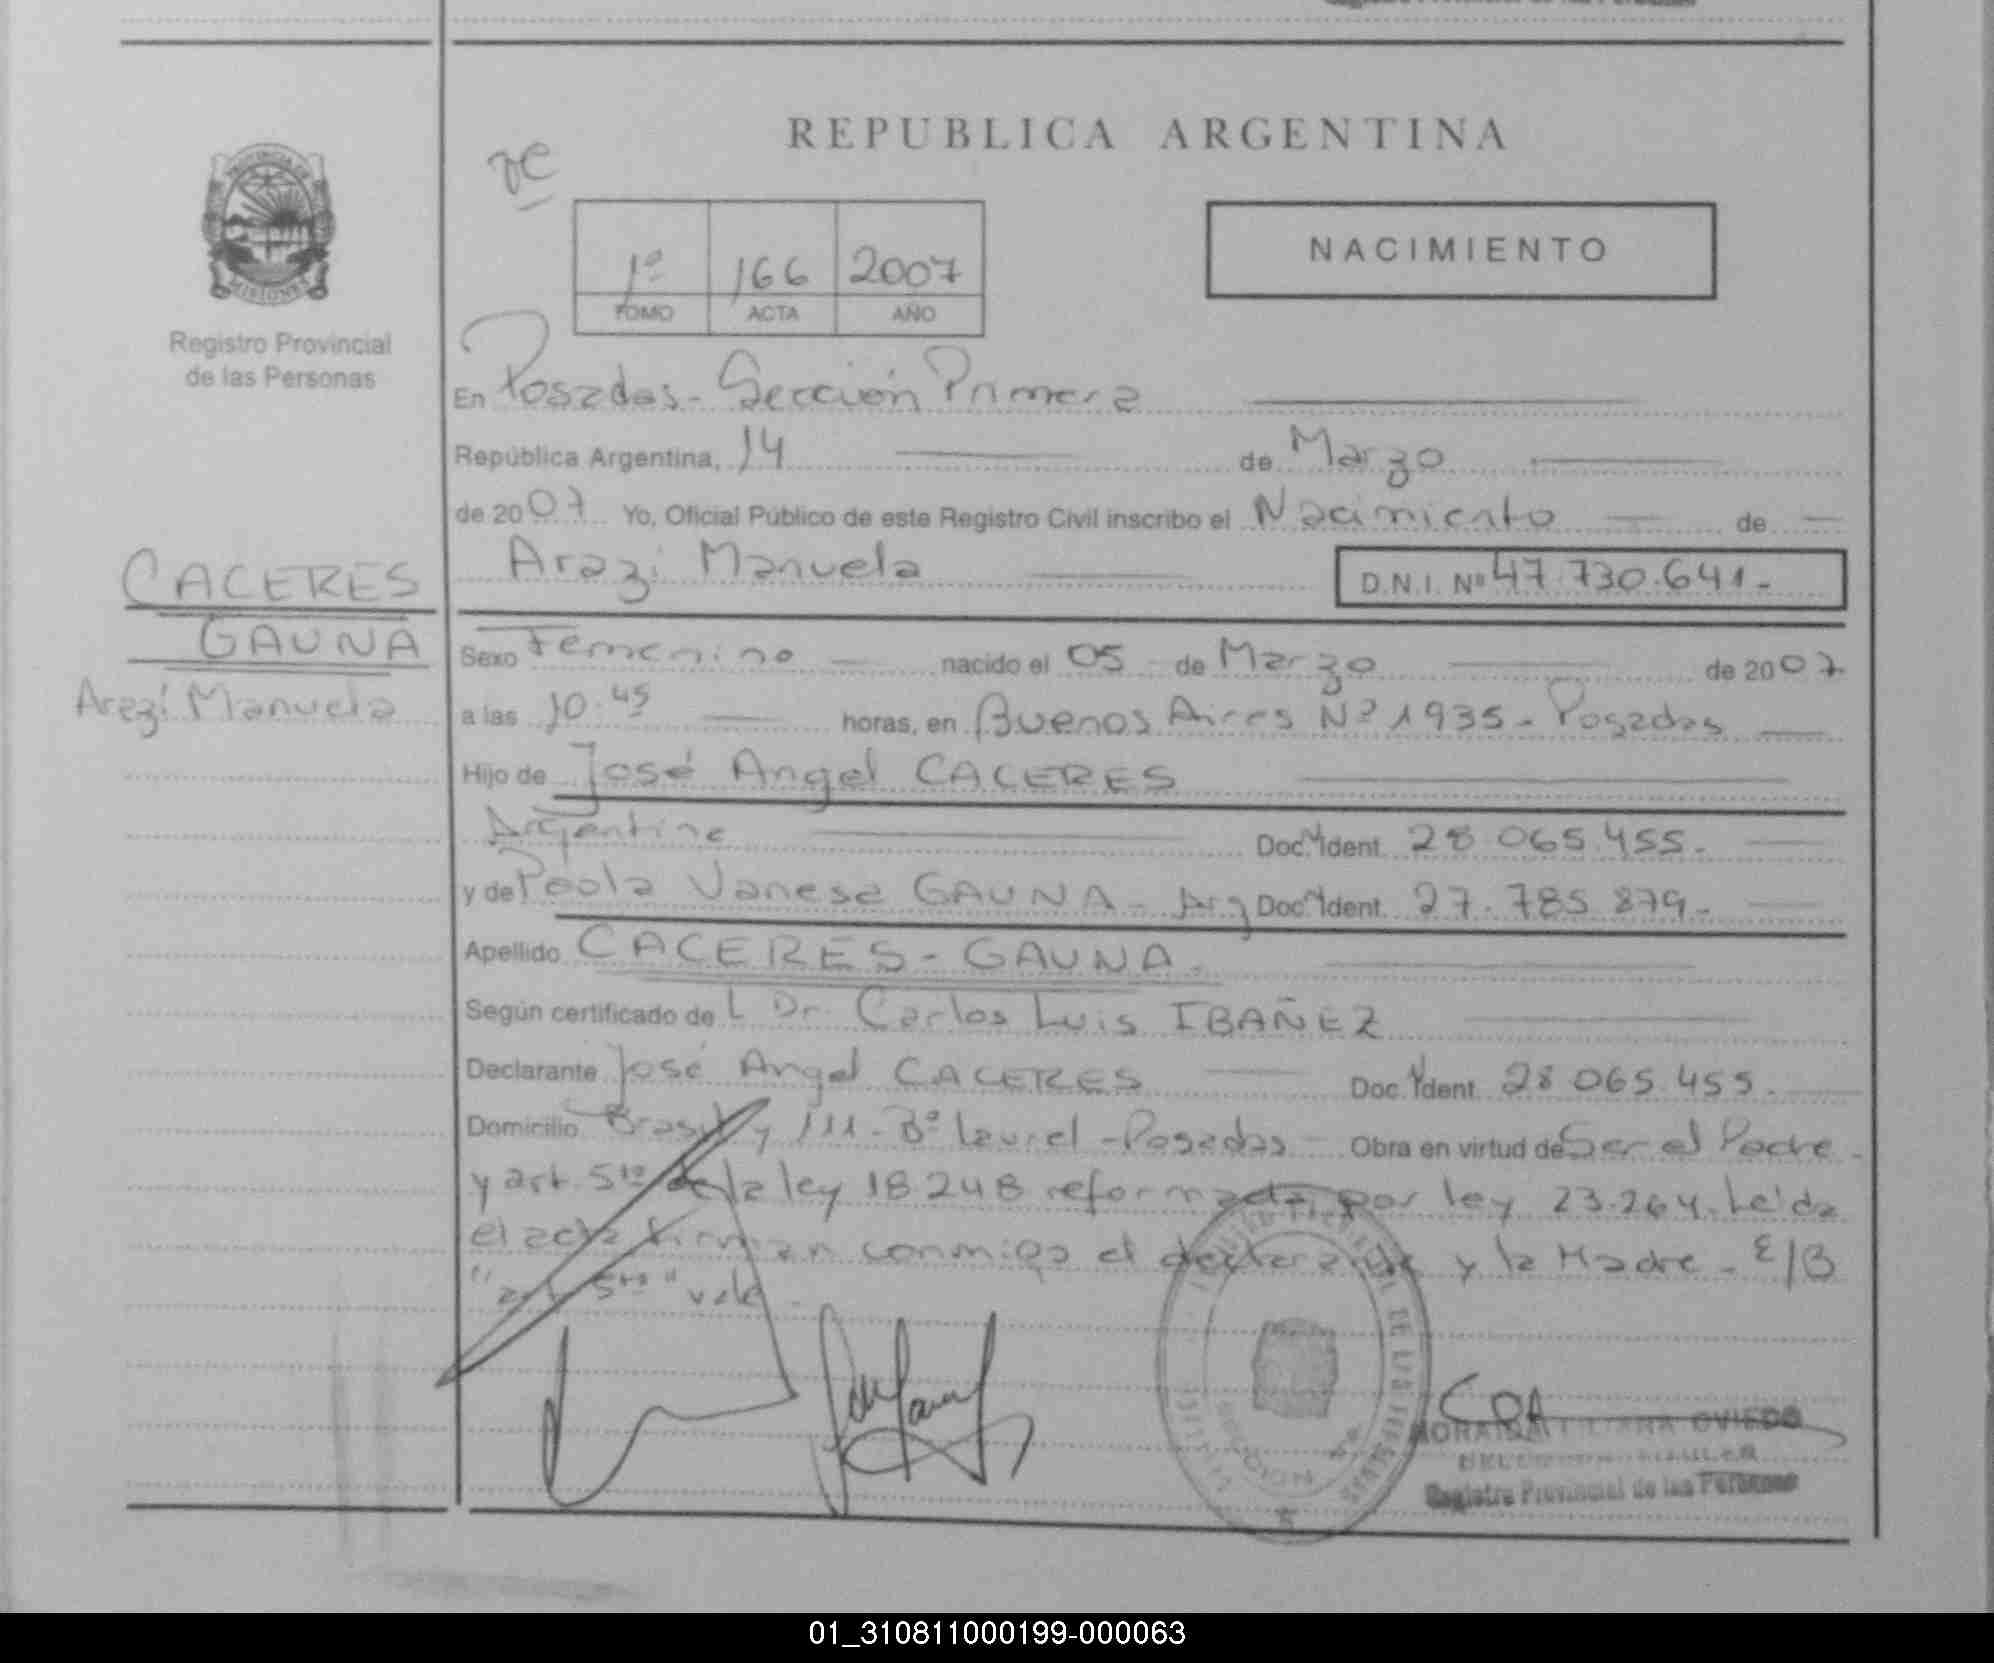 REPUBLICA ARGENTINA
PROVINCIA DE
MISIONES
Registro Provincial
de las Personas
1º 166 2007
TOMO ACTA AÑO
NACIMIENTO
En Posadas - Sección Primera
República Argentina, 14 de Marzo
de 2007 Yo, Oficial Público de este Registro Civil inscribo el Nacimiento de
Arazí Manuela D.N.I. Nº 47.730.641.-
CACERES
GAUNA
Arazí Manuela
Sexo Femenino nacido el 05 de Marzo de 2007
a las 10.45 horas, en Buenos Aires Nº 1935 - Posadas
Hijo de José Angel CACERES
Argentino Doc. Ident. 28.065.455.-
y de Paola Vanesa GAUNA - Arg Doc. Ident. 27.785.879.-
Apellido CACERES - GAUNA.
Según certificado del Dr. Carlos Luis IBAÑEZ
Declarante José Angel CACERES Doc. Ident. 28.065.455.
Domicilio Brasil y 111 - Bº Laurel - Posadas - Obra en virtud de Ser el Padre -
y art. 5to de la ley 18248 reformada por ley 23.264. Leída
el acta firman conmigo el declarante y la Madre - E/B
"art. 5to" vale.
OVIEDO
Registro Provincial de las Personas
01_310811000199-000063